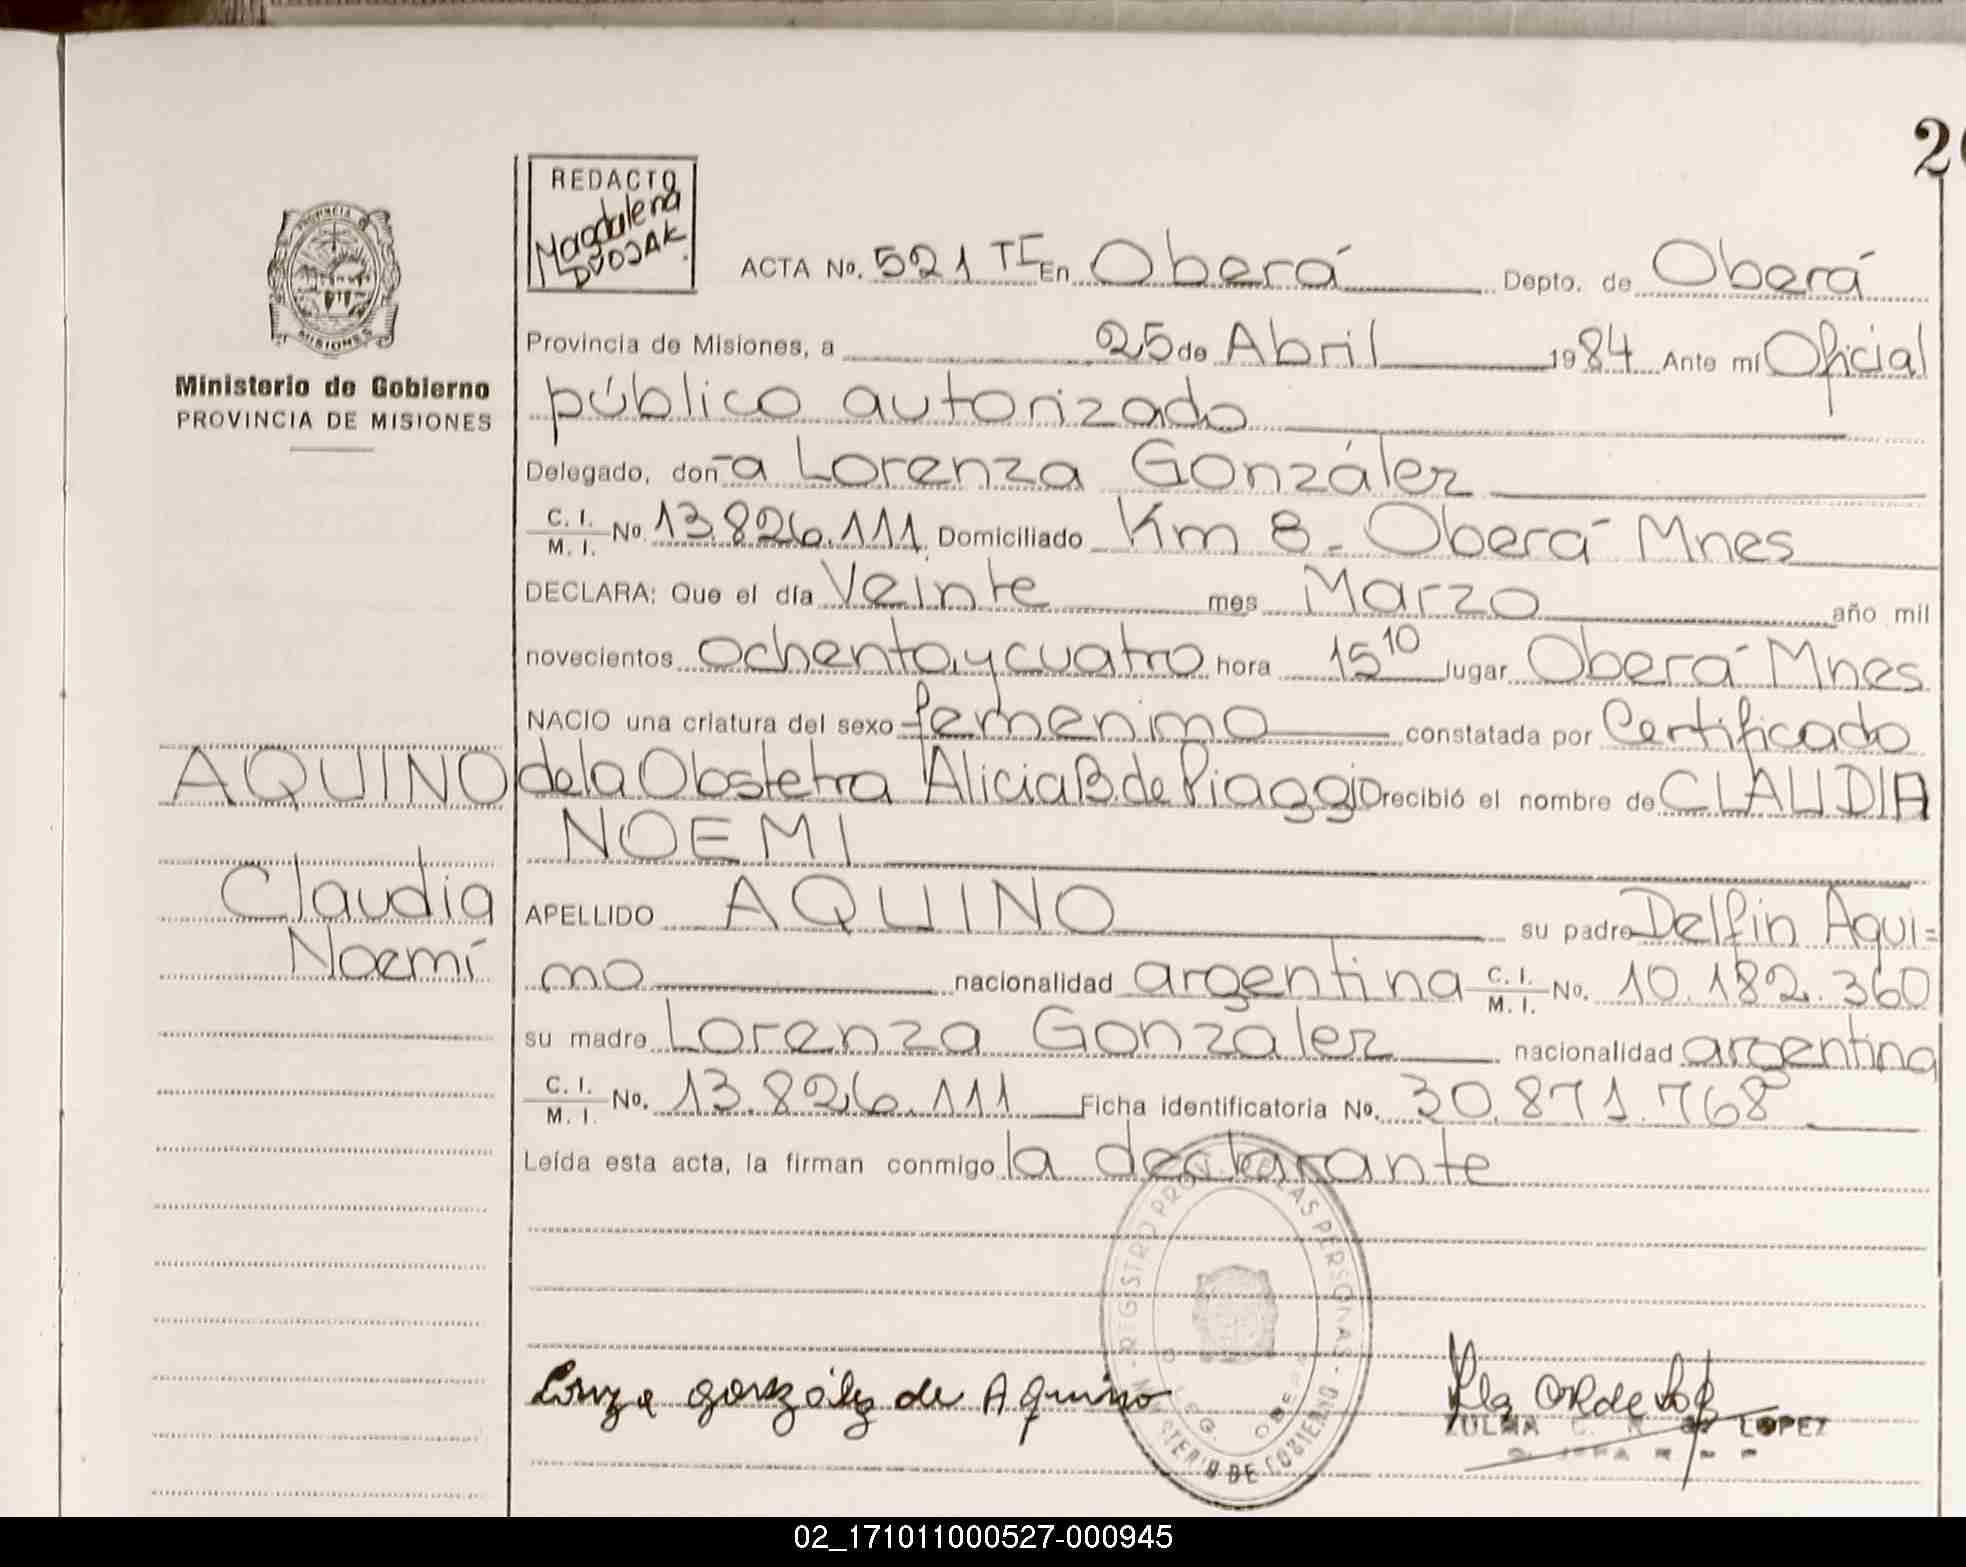 20
REDACTO
Magdalena
DVOJAK.
PROVINCIA DE
MISIONES
Ministerio de Gobierno
PROVINCIA DE MISIONES
ACTA No. 521 TI En Oberá Depto. de Oberá
Provincia de Misiones, a 25 de Abril 1984 Ante mí Oficial
público autorizado
Delegado, don-a Lorenza González
C. I. / M. I. No. 13.826.111. Domiciliado Km 8 - Oberá Mnes
DECLARA: Que el día Veinte mes Marzo año mil
novecientos ochenta y cuatro hora 15 10 lugar Oberá Mnes
NACIO una criatura del sexo femenino constatada por Certificado
de la Obstetra Alicia B. de Piaggio recibió el nombre de CLAUDIA
NOEMI
AQUINO
Claudia
Noemí
APELLIDO AQUINO su padre Delfin Aqui=
no nacionalidad argentina C. I. / M. I. No. 10.182.360
su madre Lorenza Gonzalez nacionalidad argentina
C. I. / M. I. No. 13.826.111 Ficha identificatoria No. 30.871.768
Leída esta acta, la firman conmigo la declarante
REGISTRO PROV. DE LAS PERSONAS
MINISTERIO DE GOBIERNO
gonzález de Aquino
ZULMA LOPEZ
02_171011000527-000945